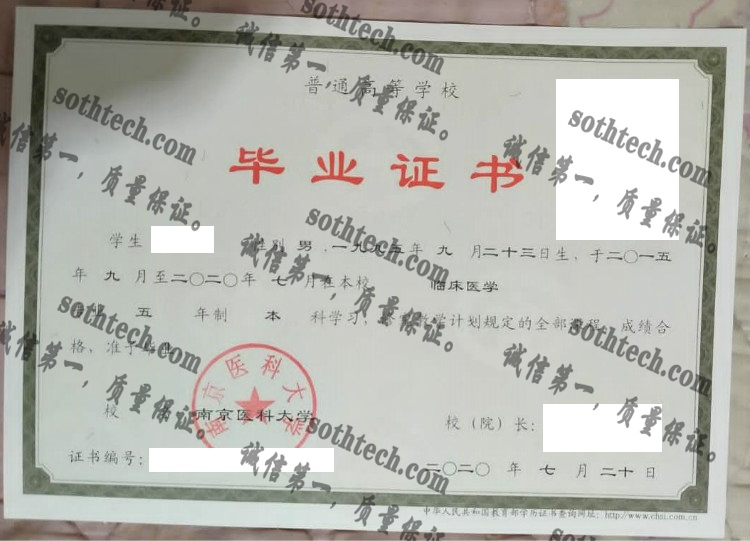 普通高等学校
毕业证书
学生 性别 男，一九九五年 九 月二十三日生，于二〇一五
年 九 月至二〇二〇年 七 月在本校 临床医学
五 年制 本 科学习，教学计划规定的全部课程，成绩合
格，准予毕业
南京医科大学
校 南京医科大学 校（院）长：
证书编号： 二〇二〇 年 七 月 二十 日
中华人民共和国教育部学历证书查询网址：http://www.chsi.com.cn
sothtech.com
诚信第一，质量保证。
sothtech.com
诚信第一，质量保证。
sothtech.com
诚信第一，质量保证。
sothtech.com
诚信第一，质量保证。
sothtech.com
诚信第一，质量保证。
sothtech.com
诚信第一，质量保证。
sothtech.com
诚信第一，质量保证。